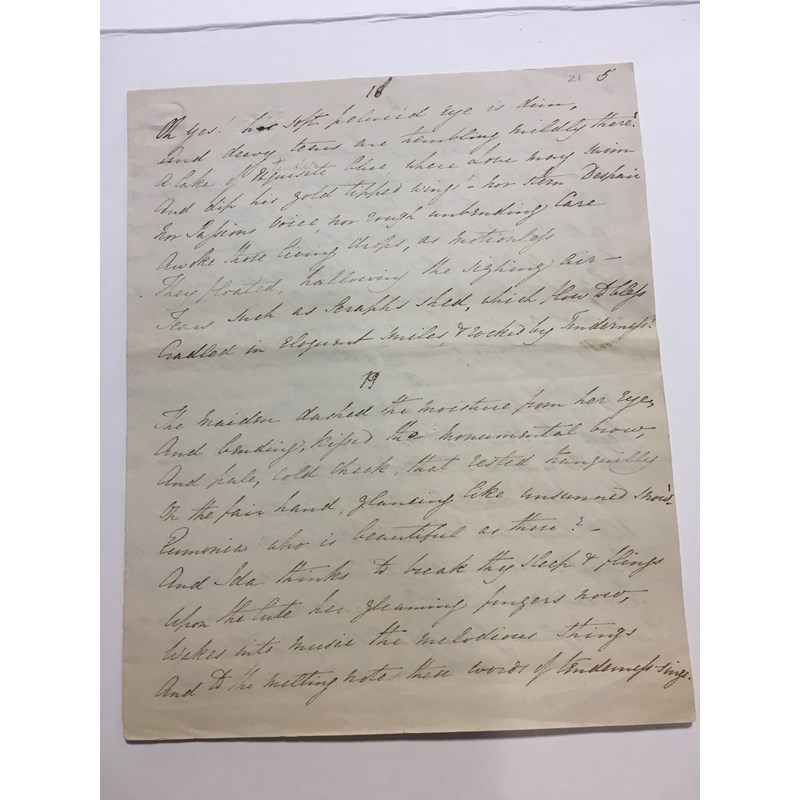 21 5
18
Oh yes! her soft pelucid eye is dim,
And dewy tears are trembling mildly there!
A lake of Exquisite blue, where Love may swim
And dip his gold tipped wings! - nor stern Despair
Nor Passions voice, nor rough unbending Care
Awoke those living drops, as motionless
They floated, hallowing the sighing air -
Tears such as Seraphs shed, which flow to bless
Cradled in Eloquent smiles, & rocked by Tenderness!
19
The maiden dashed the moisture from her Eye,
And bending, kissed the monumental brow,
And pale, cold cheek, that rested tranquilly
On the fair hand, glancing like unsunned snow!
Eumonia who is beautiful as thou? -
And Ida thinks to break thy sleep & flings
Upon the lute her gleaming fingers now,
Wakes into music the melodious things
And to the melting note these words of tenderness sings.